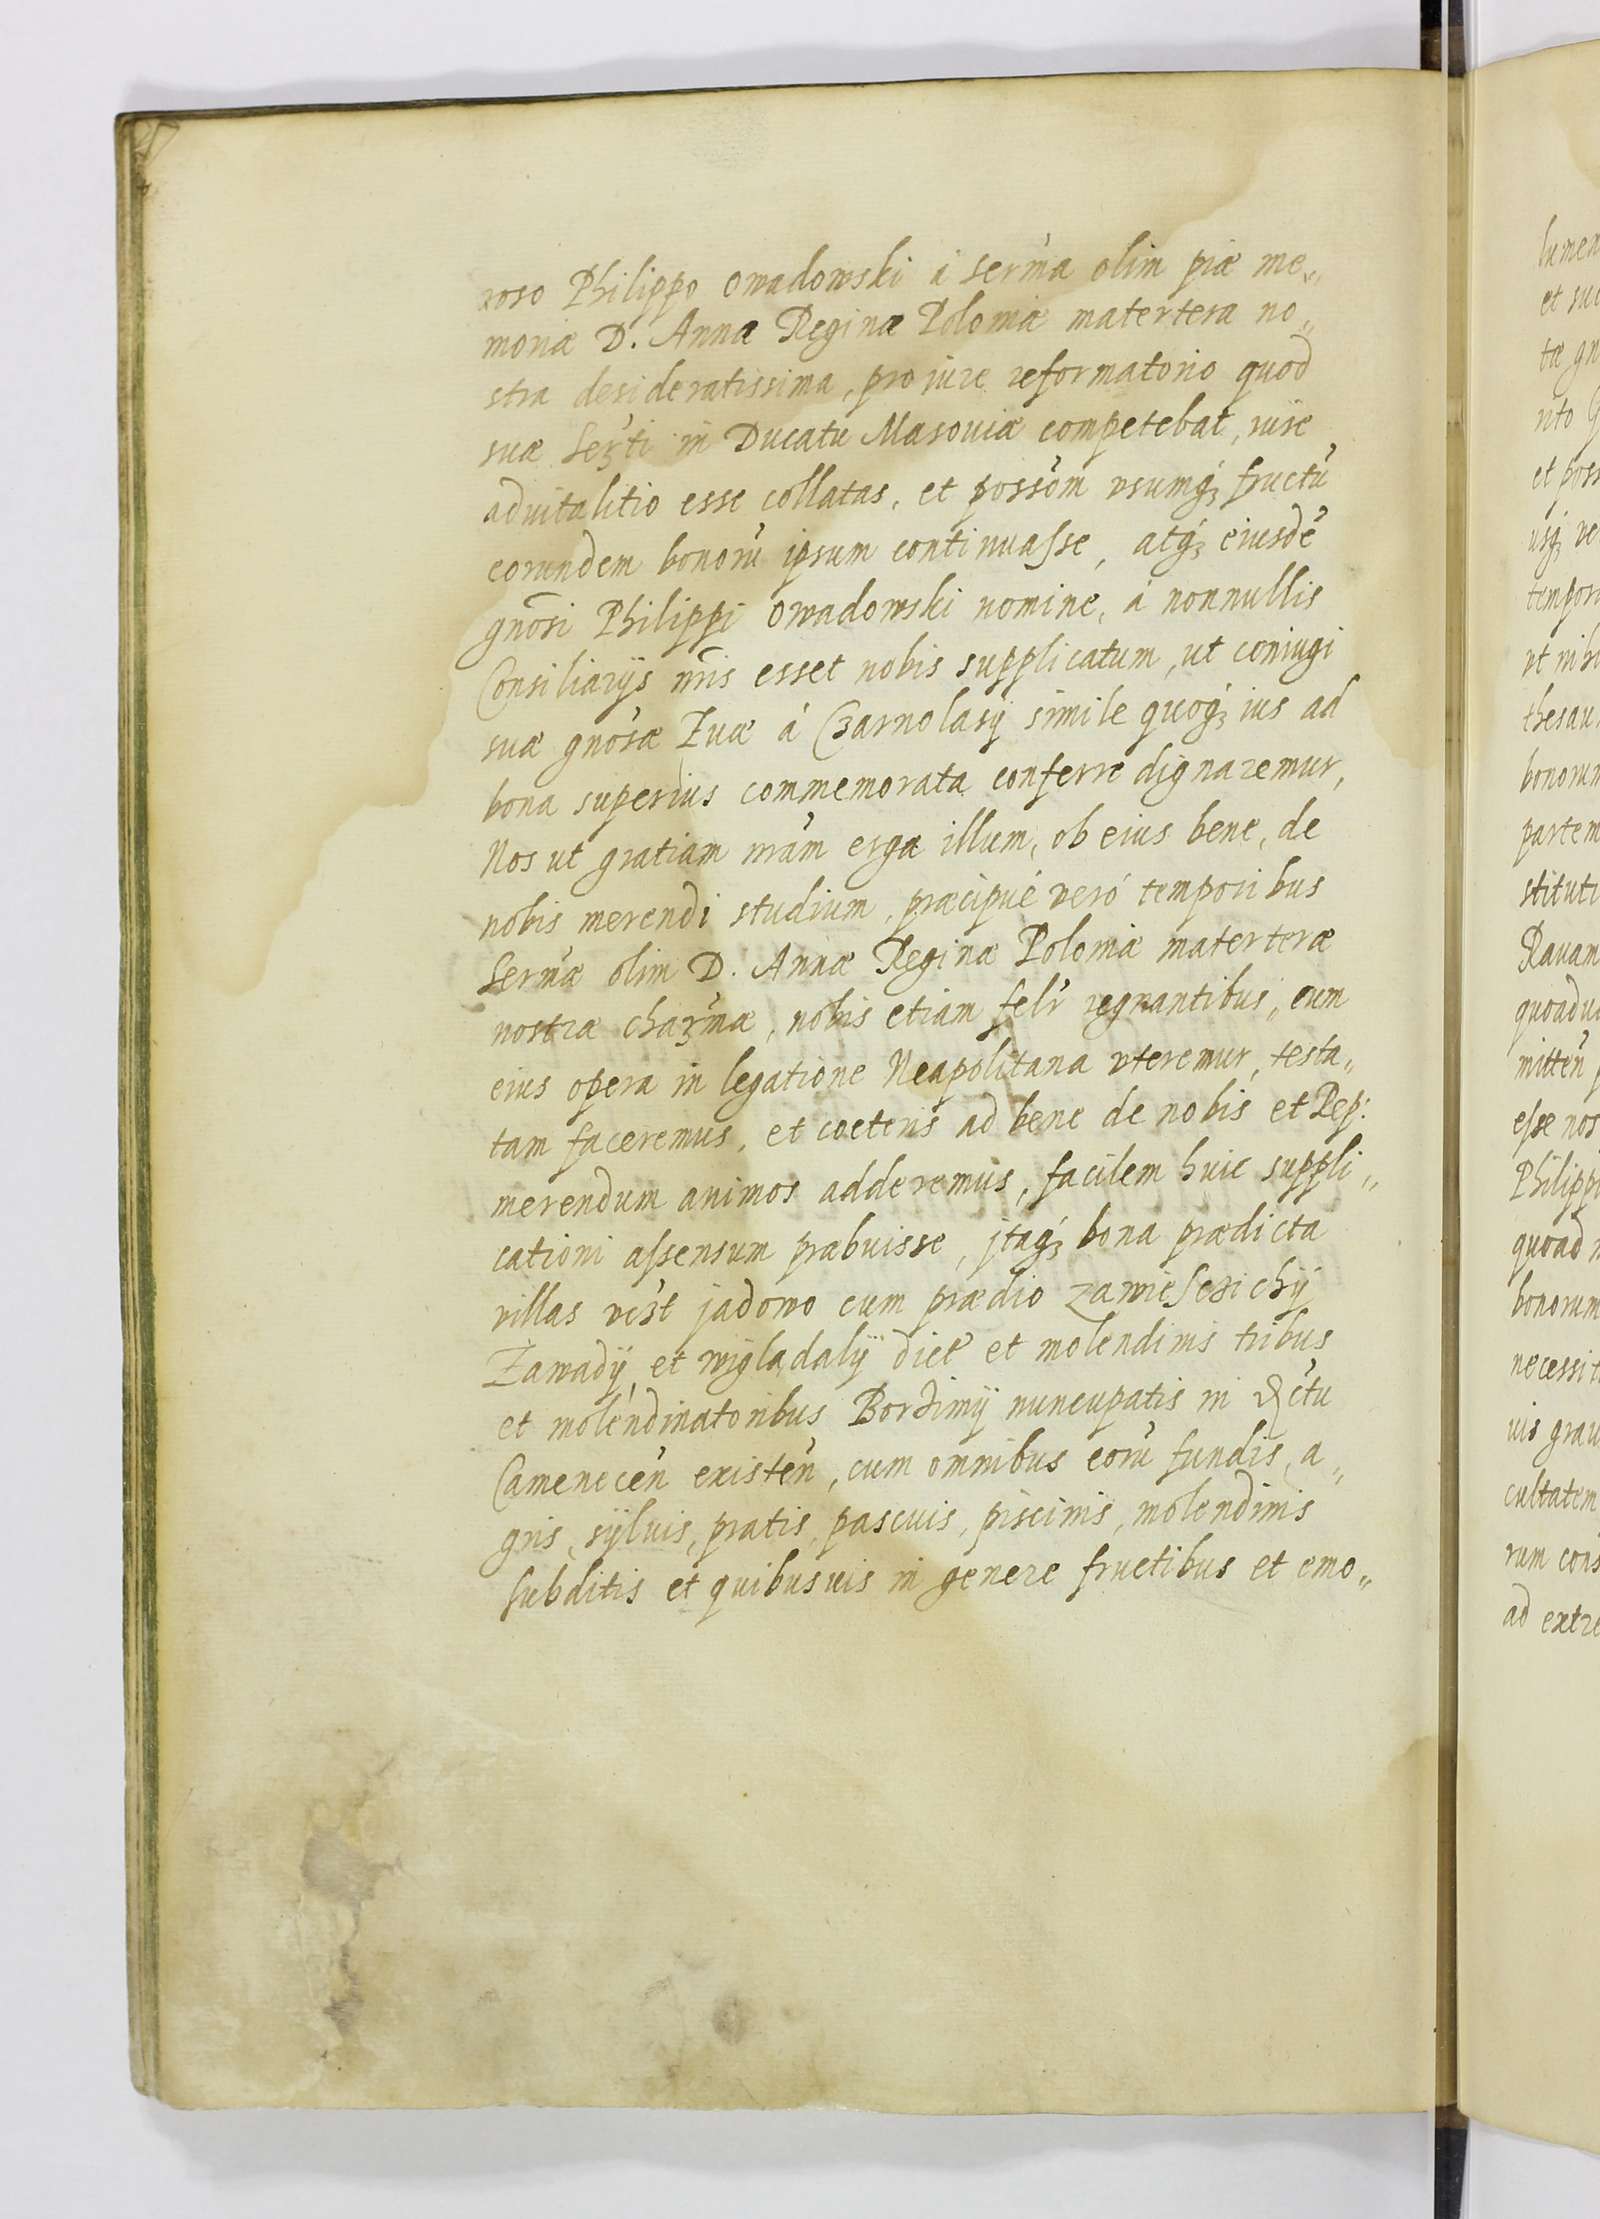 roso Philippo Owadowski á serm̃a olim piæ me„
moriæ D. Annæ Reginæ Poloniæ matertera no„
stra desideratissima, pro iure reformatorio quod
suæ Serti in Ducatu Masouiæ competebat, iure
aduitalitio esse collatas, et possom̃ vsumq́ꝫ fructũ
eorundem bonorũ ipsum continuasse, atq́ꝫ eiusdẽ
gnõsi Philippi Owadowski nomine, á nonnullis
Consiliarijs nr̃is esset nobis supplicatum, ut coniugi
suæ gnõsæ Euæ á Czarnolasÿ simile quoq́ꝫ ius ad
bona superius commemorata conferre dignaremur,
Nos ut gratiam nrãm erga illum, ob eius bene, de
nobis merendi studium, præcipué veró temporibus
Serm̃æ olim D. Annæ Reginæ Poloniæ materteræ
nostræ charm̃æ, nobis etiam felr̃ regnantibus, cum
eius opera in legatione Neapolitana vteremur, testa„
tam faceremus, et coeteris ad bene de nobis et Rep:
merendum animos adderemus, facilem huic suppli„
cationi assensum præbuisse, jtaq́ꝫ bona prædicta
villas vezt jadowo cum prædio
Zawadÿ et dict̃ et molendinis tribus
et molendinatoribus nuncupatis in
Camenecen̄ existen̄, cum omnibus eorũ fundis, a„
gris, sÿluis, pratis, pascuis, piscinis, molendinis
subditis et quibusuis in genere fructibus et emo„
lumen
et suc
tæ gn
nto G
et poss
usq́ꝫ ve
tempor
vt nihi
thesau
bonorum
partem
stituti
Rauam
quoadu
mitten̄
esse nos
Philippi
quoad
bonorum
necessit
uis grau
cultatem
rum cons
ad extre